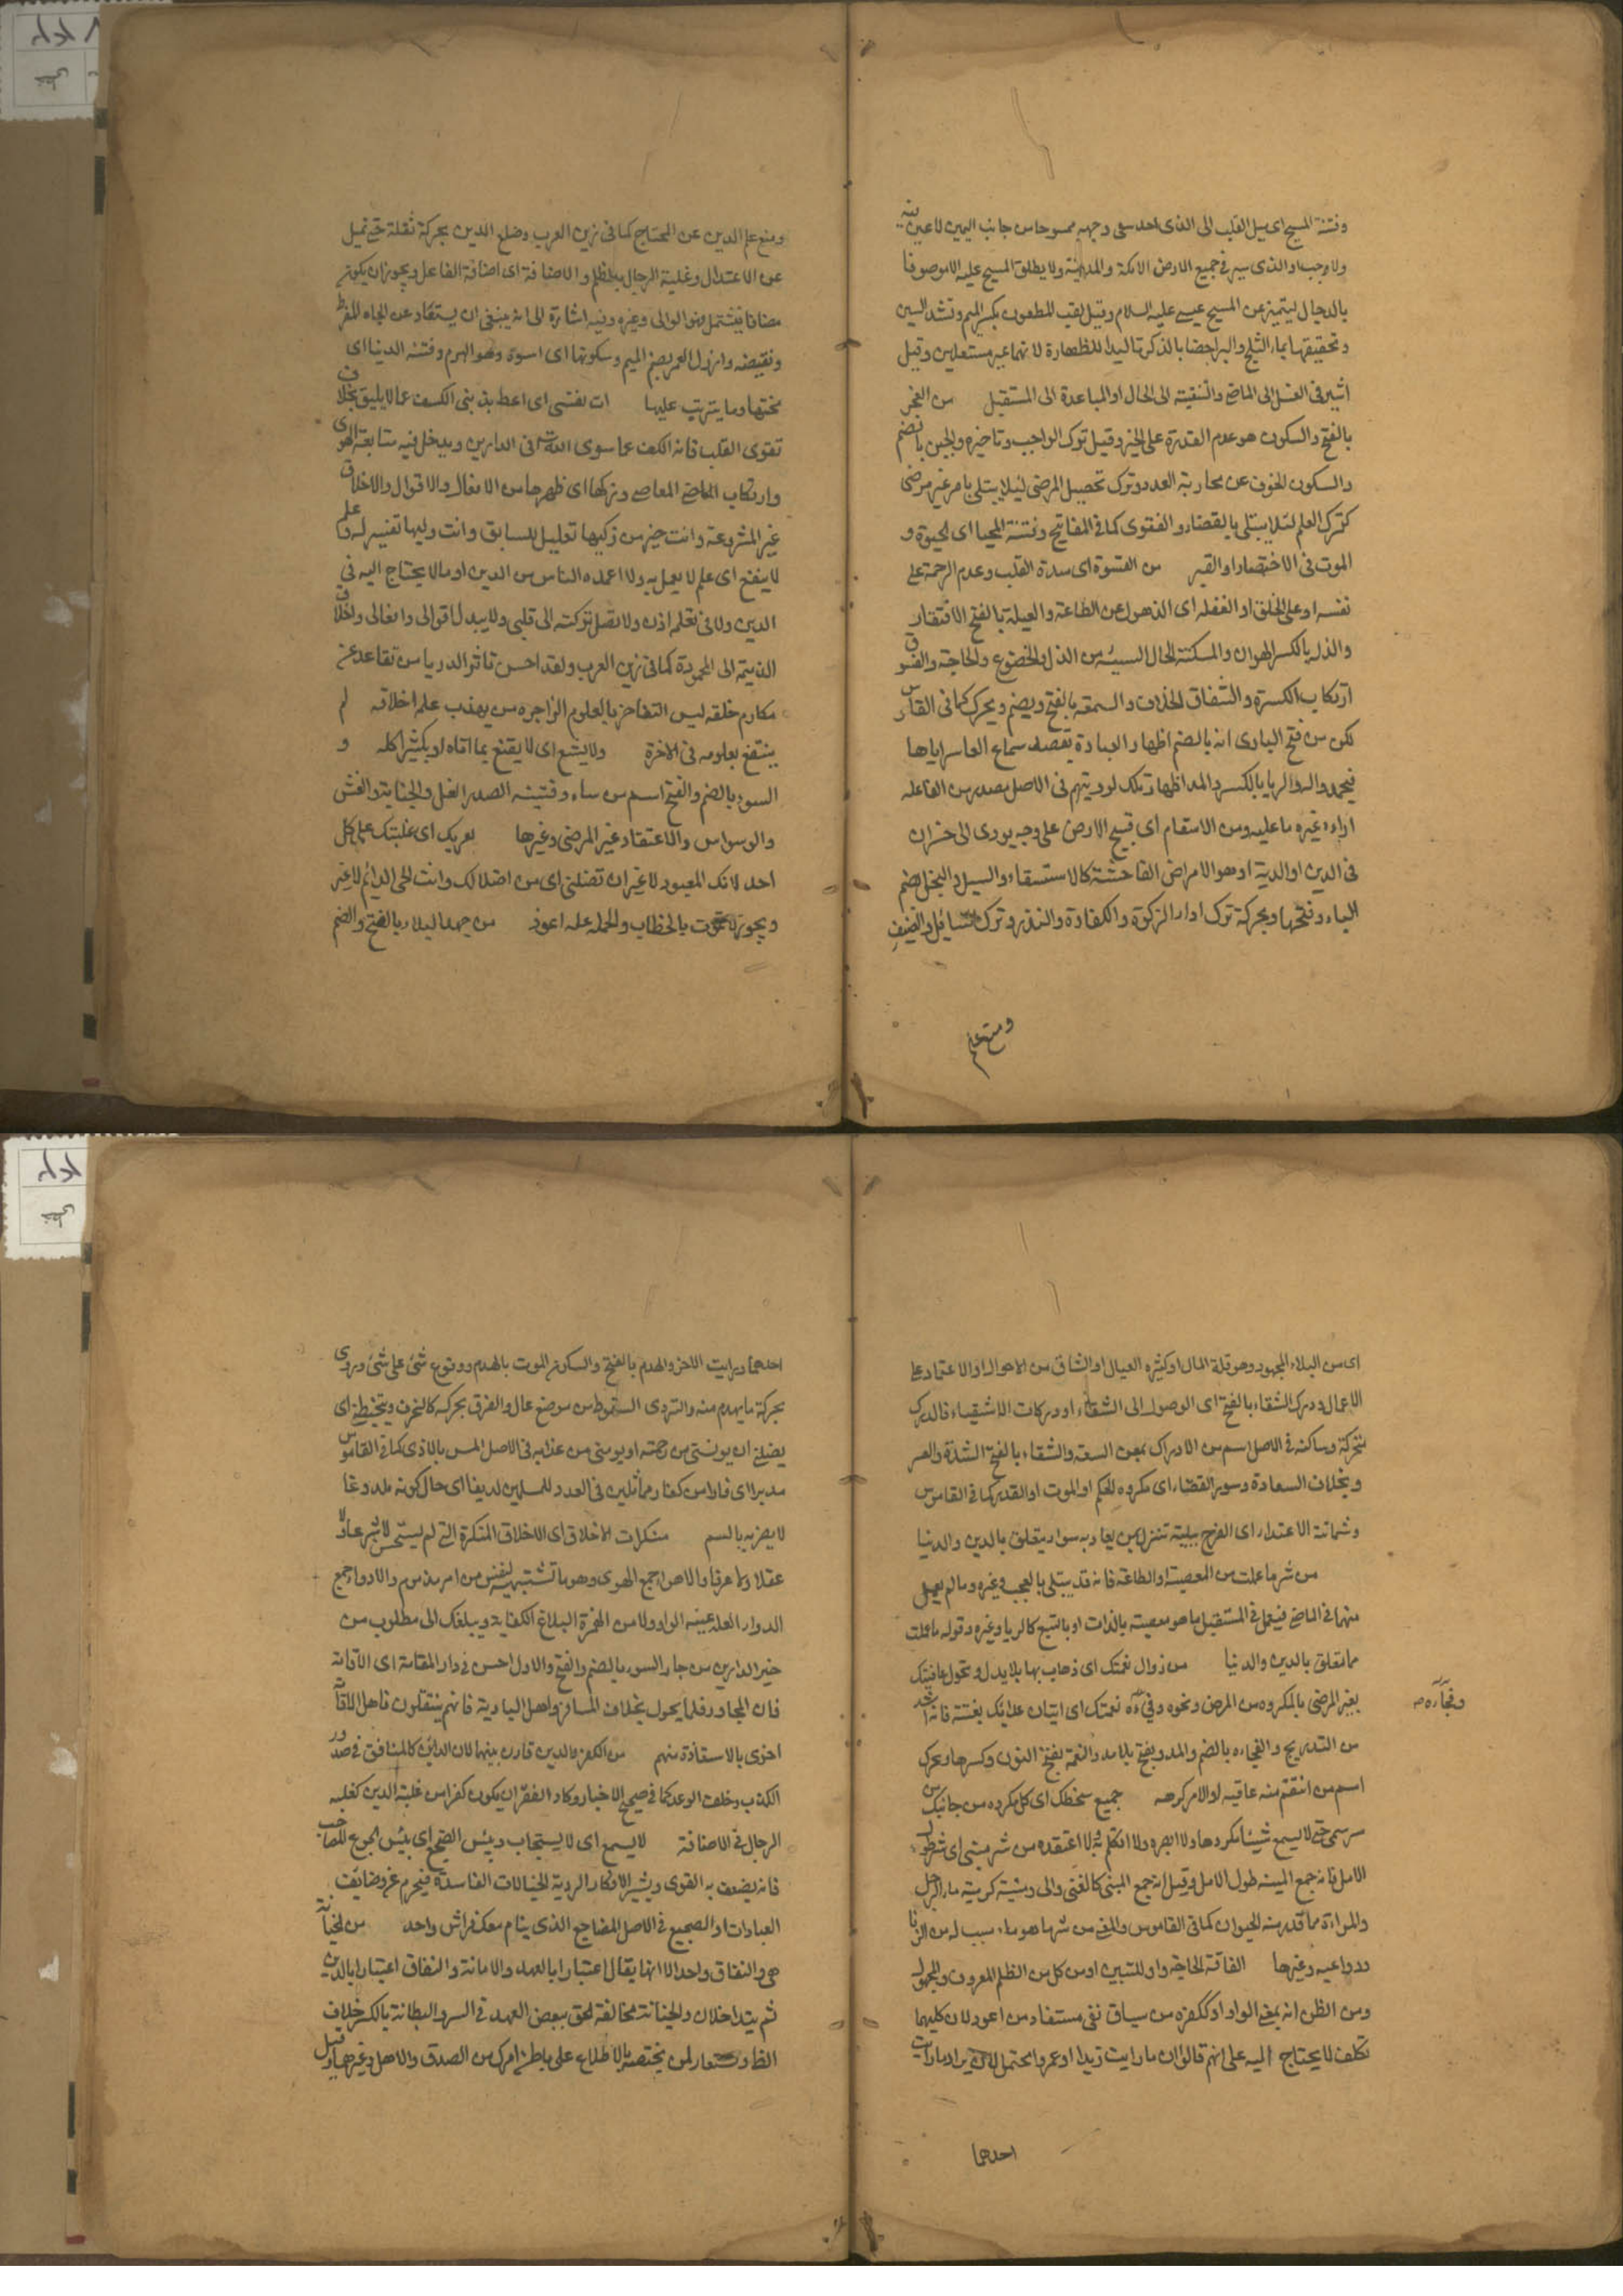 وفتنة المسيح اى ميل القلب الى الذى احد سعى وجهه ممسوحا من جانب اليمين لا عين فيه
ولا وجب او الذى يسير فى جميع الارض الا مكة والمدينة ولا يطلق المسيح عليه الا موصوفا
بالدجال ليتميز عن المسيح عيسى عليه السلام وقيل لقب للمطعون بكسر الميم وتشديد السين
وتحقيقها بماء الثلج والبرد خصا بالذكر تاكيدا للطهارة لانهما غير مستعملين وقيل
اشير فى الغسل الى الماضى والتنقية الى الحال او المباعدة الى المستقبل من العجز
بالفتح والسكون هو عدم القدرة على الخير وقيل ترك الواجب وتاخيره والجبن بالضم
والسكون الخوف عن محاربة العدو وترك تحصيل المرضى ليلا يبتلى بامر غير مرضى
كترك العلم لئلا يبتلى بالقضاء والفتوى كما فى المفاتيح وفتنة المحيا اى الحيوة و
الموت فى الاختصار او القبر من القسوة اى شدة القلب وعدم الرحمة على
نفسه او على الخلق او الغفلة اى الذهول عن الطاعة والعيلة بالفتح الافتقار
والذل بالكسر الهوان والمسكنة الحال السيئة من الذل والخضوع والحاجة والفسوق
ارتكاب الكسرة والشقاق الخلاف والسمعة بالفتح ويضم ويحرك كما فى القاموس
لكن من فتح البارى انه بالضم اظهار العبادة بقصد سماع الناس اياها
فيحمدوا والريا بالكسر والمد اظهار تلك لرويتهم فى الاصل مصدر من الفاعلة
اراء غيره ما عليه ومن الاسقام اى قبيح الارض على وجه يودى الى خسران
فى الدين او الدية او هو الامراض الفاحشة كالاستسقاء والسل والبخل بضم
الباء وفتحها وبحركة ترك اداء الزكوة والكفارة والنذر وترك السائل والضيف
ومنع علم
ومنع علم الدين عن المحتاج كما فى زين العرب وضلع الدين بحركة ثقلة حتى تميل
عن الاعتدال وغلبة الرجال بالظلم والاضافة اى اضافة الفاعل ويجوز ان يكون
مضافا فيشتمل نحو الوالى وغيره وفيه اشارة الى انه ينبغى ان يستعاذ عن الجاه المفرط
ونقيضه وارذل العمر بضم الميم وسكونها اى اسوءه وهو الهرم وفتنه الدنيا اى
محنتها وما يترتب عليها ات نفسى اى اعط بذ بنى الكسف عما لا يليق بخلاف
تقوى القلب فانه الكف عما سوى الله فى الدارين ويدخل فيه متابعة الهوى
وارتكاب الماضى المعاصى وزكها اى طهرها من الافعال والاقوال والاخلاق
غير المشروعة وانت خير من زكيها تعليل للسابق وانت وليها تفسير له علم
لا ينفع اى علم لا يعمل به ولا اعلمه الناس من الدين او مالا يحتاج اليه فى
الدين ولا فى تعلمه اذن ولا تصل بركته الى قلبى ولا يبدل اقوالى وافعالى واخلاق
الذميمة الى المحمودة كما فى زين العرب ولقد احسن تاثر الدر يا من تقاعد عن
مكارم خلقه ليس التفاخر بالعلوم الزاجره من يهذب علمه اخلاقه لم
ينتفع بعلومه فى الاخرة ولا يشبع اى لا يقنع بما اتاه او يكثر اكله و
السوء بالضم والفتح اسم من ساء وفتنة الصدر الغل والخيانة والغش
والوسواس والاعتقاد غير المرضى وغيرها بعزتك اى غلبتك على كل
احد لانك المعبود لا غير ان تضلنى اى من اضلالك وانت الحى الدائم لا غير
ويجوز لا تموت بالخطاب والجملة علة اعوذ من جهد البلاء بالفتح والضم
اى من البلاء المجهود وهو قلة المال وكثرة العيال او الشاق من الاحوال او الاعتماد على
الاعمال ودرك الشقاء بالفتح اى الوصول الى الشقاء او دركات الاشقياء فالدرك
متحركة وساكنه فى الاصل اسم من الادراك بمعنى السعة والشقاء بالفتح الشدة والعسر
وبخلاف السعادة وسوء القضاء اى مكروه الحكم او الموت او القدر كما فى القاموس
وشماتة الاعداء اى الفرح ببلية تنزل بمن يعاديه سواء يتعلق بالدين والدنيا
من شر ما عملت من المعصية او الطاعة فانه قد يبتلى بالعجب وغيره وما لم يعمل
منها فى الماضى فيعمل فى المستقبل ما هو معصية بالذات او بالتبع كالريا وغيره وقوله ما عملت
مما تتعلق بالدين والدنيا من زوال نعمتك اى ذهاب بها بلا بدل وتحول عافيتك
بغير المرضى بالمكروه من المرض ونحوه وفجاءة نقمتك اى اتيان عذابك بغتة فانه اشد
وفجاءه
من التدريج والفجاءه بالضم والمد وبفتح بلا مد والنقمة بفتح النون وكسرها ويحرك
اسم من انتقم منه عاقبه او الامر كرهه جميع سخطك اى كل مكروه من جانبك
من سمعى حتى لا يسمع شيئا مكروها ولا ابصره ولا اتكلم به لا اعتقده من شر منيتى اى شر طول
الامل فانه جمع المينه طول الامل وقيل انه جمع المنى كالغنى والى ومنية كرمية ماء الرجل
والمراءة مما قدر منه الحيوان كما فى القاموس والمعنى من شر ما هو ماء سبب له من الزنا
ودواعيه وغيرها الفاقة الحاجة واو للتبيين او من كل من الظلم المعروف والمجهول
ومن الظن انه بمعنى الواو او ككفره من سياق نفى مستفاد من اعوذ لان كليهما
تكلف لا يحتاج اليه على انهم قالوا ان ما رايت زيدا او عمروا يحتمل لان يراد ما رايت
احدهما
احدهما ورايت الاخر والهدم بالفتح والسكون الموت بالهدم ووقوع شئ على شئ وروى
بحركة ما يهدم منه والتردى السقوط من موضع عال والغرق بحركه كالحرف ويتخبطنى اى
يضلنى ان يونسنى من رحمته او يومنى من عذابه فى الاصل المس بالاذى كما فى القاموس
مدبرا اى فارا من كفار مماثلين فى العدد للمسلمين لديغا اى حال كونه ملدوغا
لا يضر به بالسم منكرات الاخلاق اى الاخلاق المنكرة التى لم يستحسن شرعا ولا
عقلا ولا عرفا والاهواء جمع الهوى وهو ما تشتهيه النفس من امر مذموم والادواء جمع
الدواء العلة عينه الواو ولامه الهمزة البلاغ الكفاية ويبلغك الى مطلوب من
خير الدارين من جار السوء بالضم والفتح والاول احسن فى دار المقامة اى الاقامة
فان المجاور قلما يحول بخلاف المسافر واهل البادية فانهم ينتقلون فاهل الاقامة
احرى بالاستعاذة منهم من الكفر والدين قارن بينهما لان الدائن كالمنافق فى صدور
الكذب وخلف الوعد كما فى صحيح الاخبار وكاد الفقر ان يكون كفرا من غلبة الدين كغلبه
الرجال فى الاضافة لا يسمع اى لا يستجاب وبئس الضجيع اى بئس الجوع المصاحب
فانه يضعف به القوى ويثير الافكار الردية الخيالات الفاسدة فيحرم عن وضائف
العبادات او الضجيع فى الاصل المضاجع الذى ينام معك فراش واحد من الخيانة
هى والنفاق واحد الا انها يقال اعتبارا بالعهد والامانة والنفاق اعتبارا بالدين
ثم يتداخلان والخيانة مخالفة الحق بنقض العهد فى السر والبطانة بالكسر خلاف
الظاهر تستعار لمن يختصه بالاطلاع على باطن امرك من الصدق والاهل وغيرها وقيل